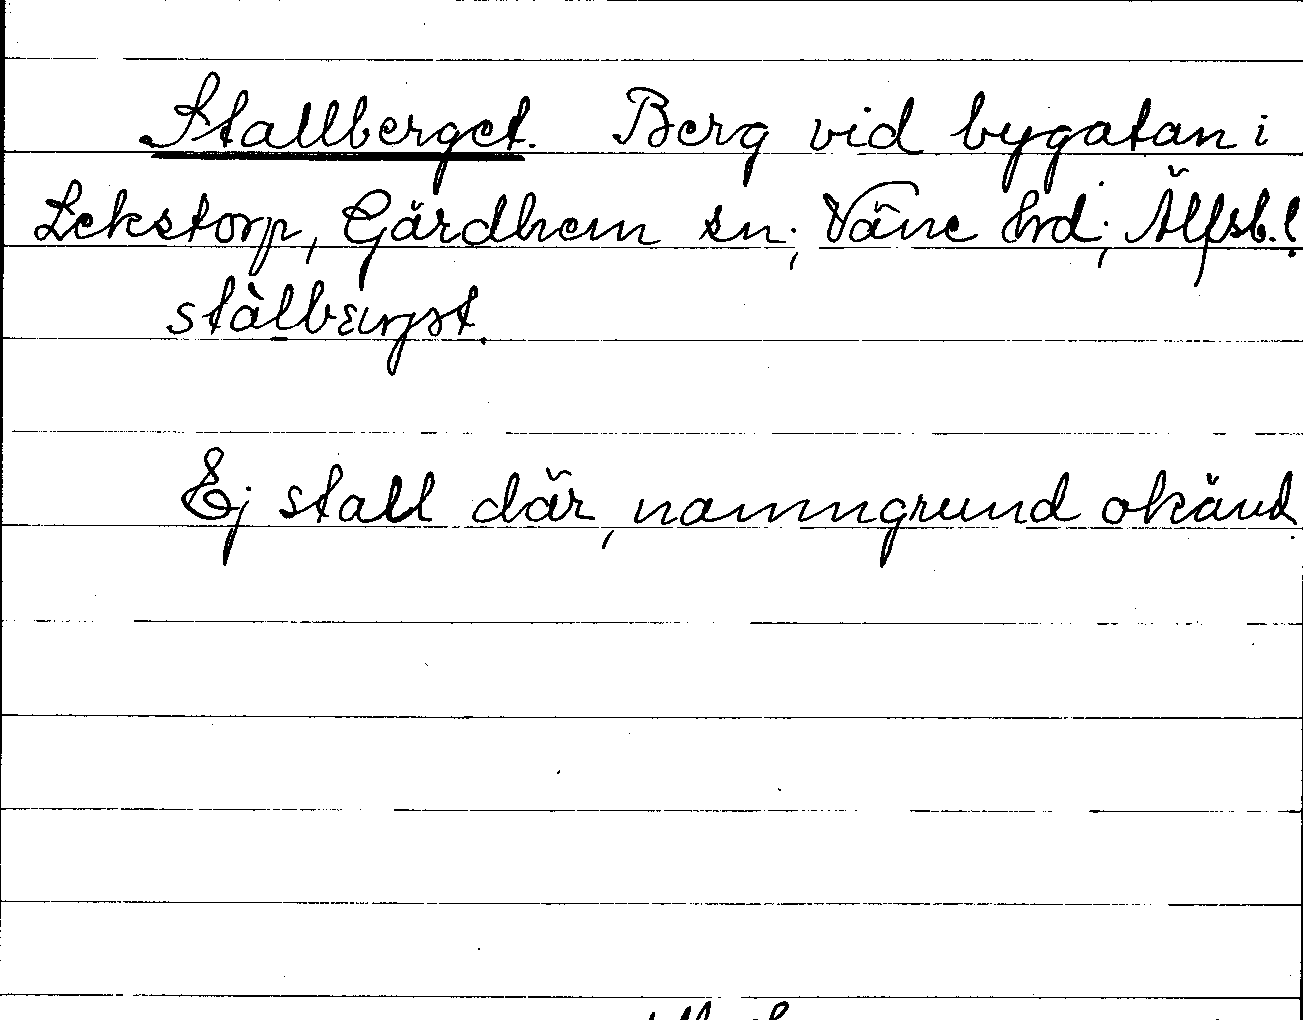 Stallberget. Berg vid bygatan i
Lekstorp, Gärdhem sn; Väne hrd; Älfsb. l.
Ej stall där, namngrund okänd.